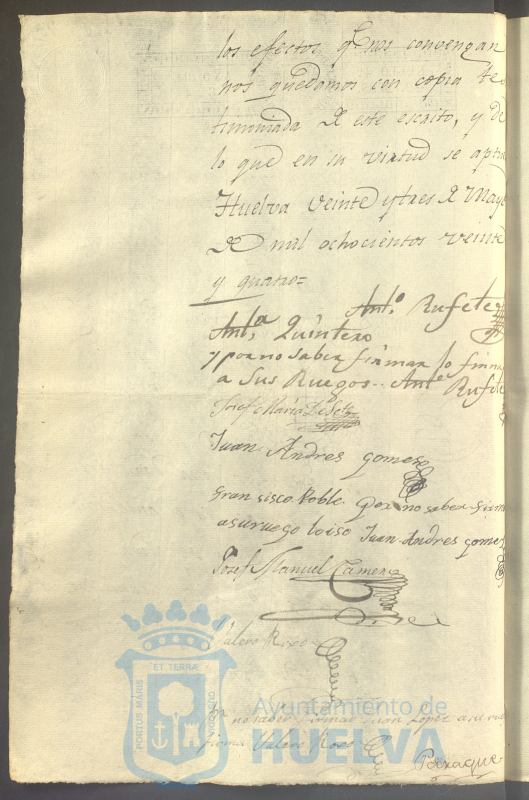 los efectos qᵉ nos convengan
nos quedamos con copia tes
timoniada de este escrito, y de
lo que en su virtud se
Huelva veinte y tres de Mayo
de mil ochocientos veinte
y quatro=
Antº Rufete
Antª Quintero
y por no saber firmar lo firmo
a sus Ruegos.. Antº Rufete
Josef Maria
Juan Andres gomes
fransisco Roble por no saber firm
a su ruego loiso Juan Andres gomes
Josef Manuel Camero
Valero Roxo
Por no saber firmar Juan Lopez a su rue
firma Valero Roxo
PORTUS MARIS ET TERRÆ CUSTODIA
Ayuntamiento de
HUELVA